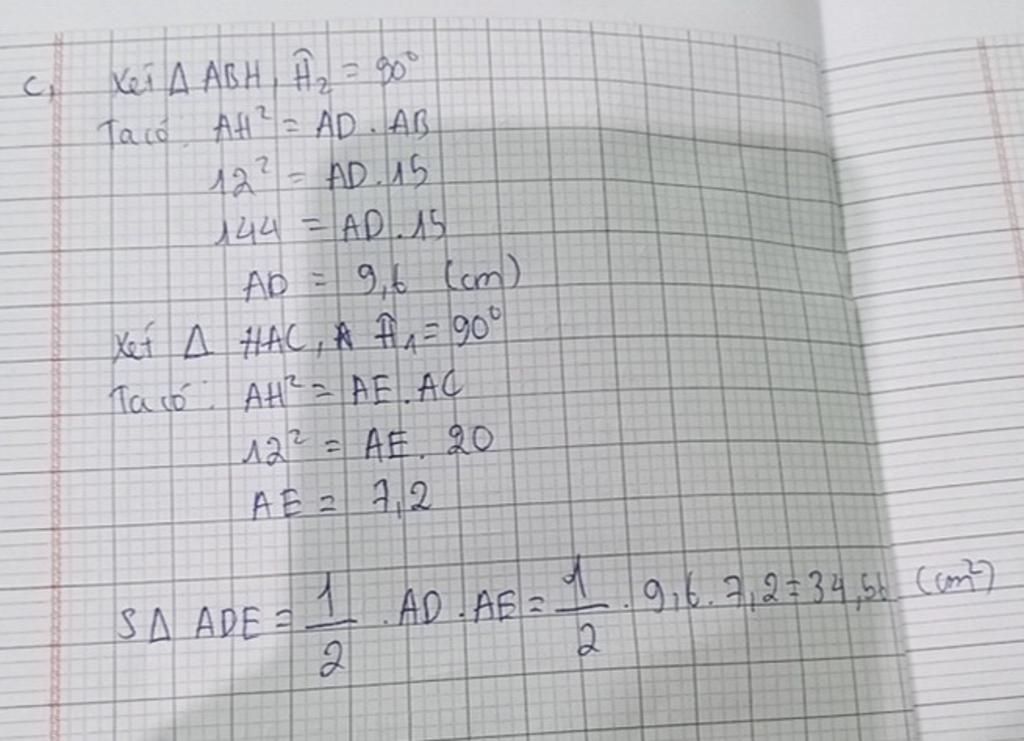 c, Xét Δ ABH, Ĥ₂ = 90°
Ta có: AH² = AD . AB
12² = AD . 15
144 = AD . 15
AD = 9,6 (cm)
Xét Δ HAC, Ĥ₁ = 90°
Ta có: AH² = AE . AC
12² = AE . 20
AE = 7,2
SΔ ADE = 1/2 . AD . AE = 1/2 . 9,6 . 7,2 = 34,56 (cm²)